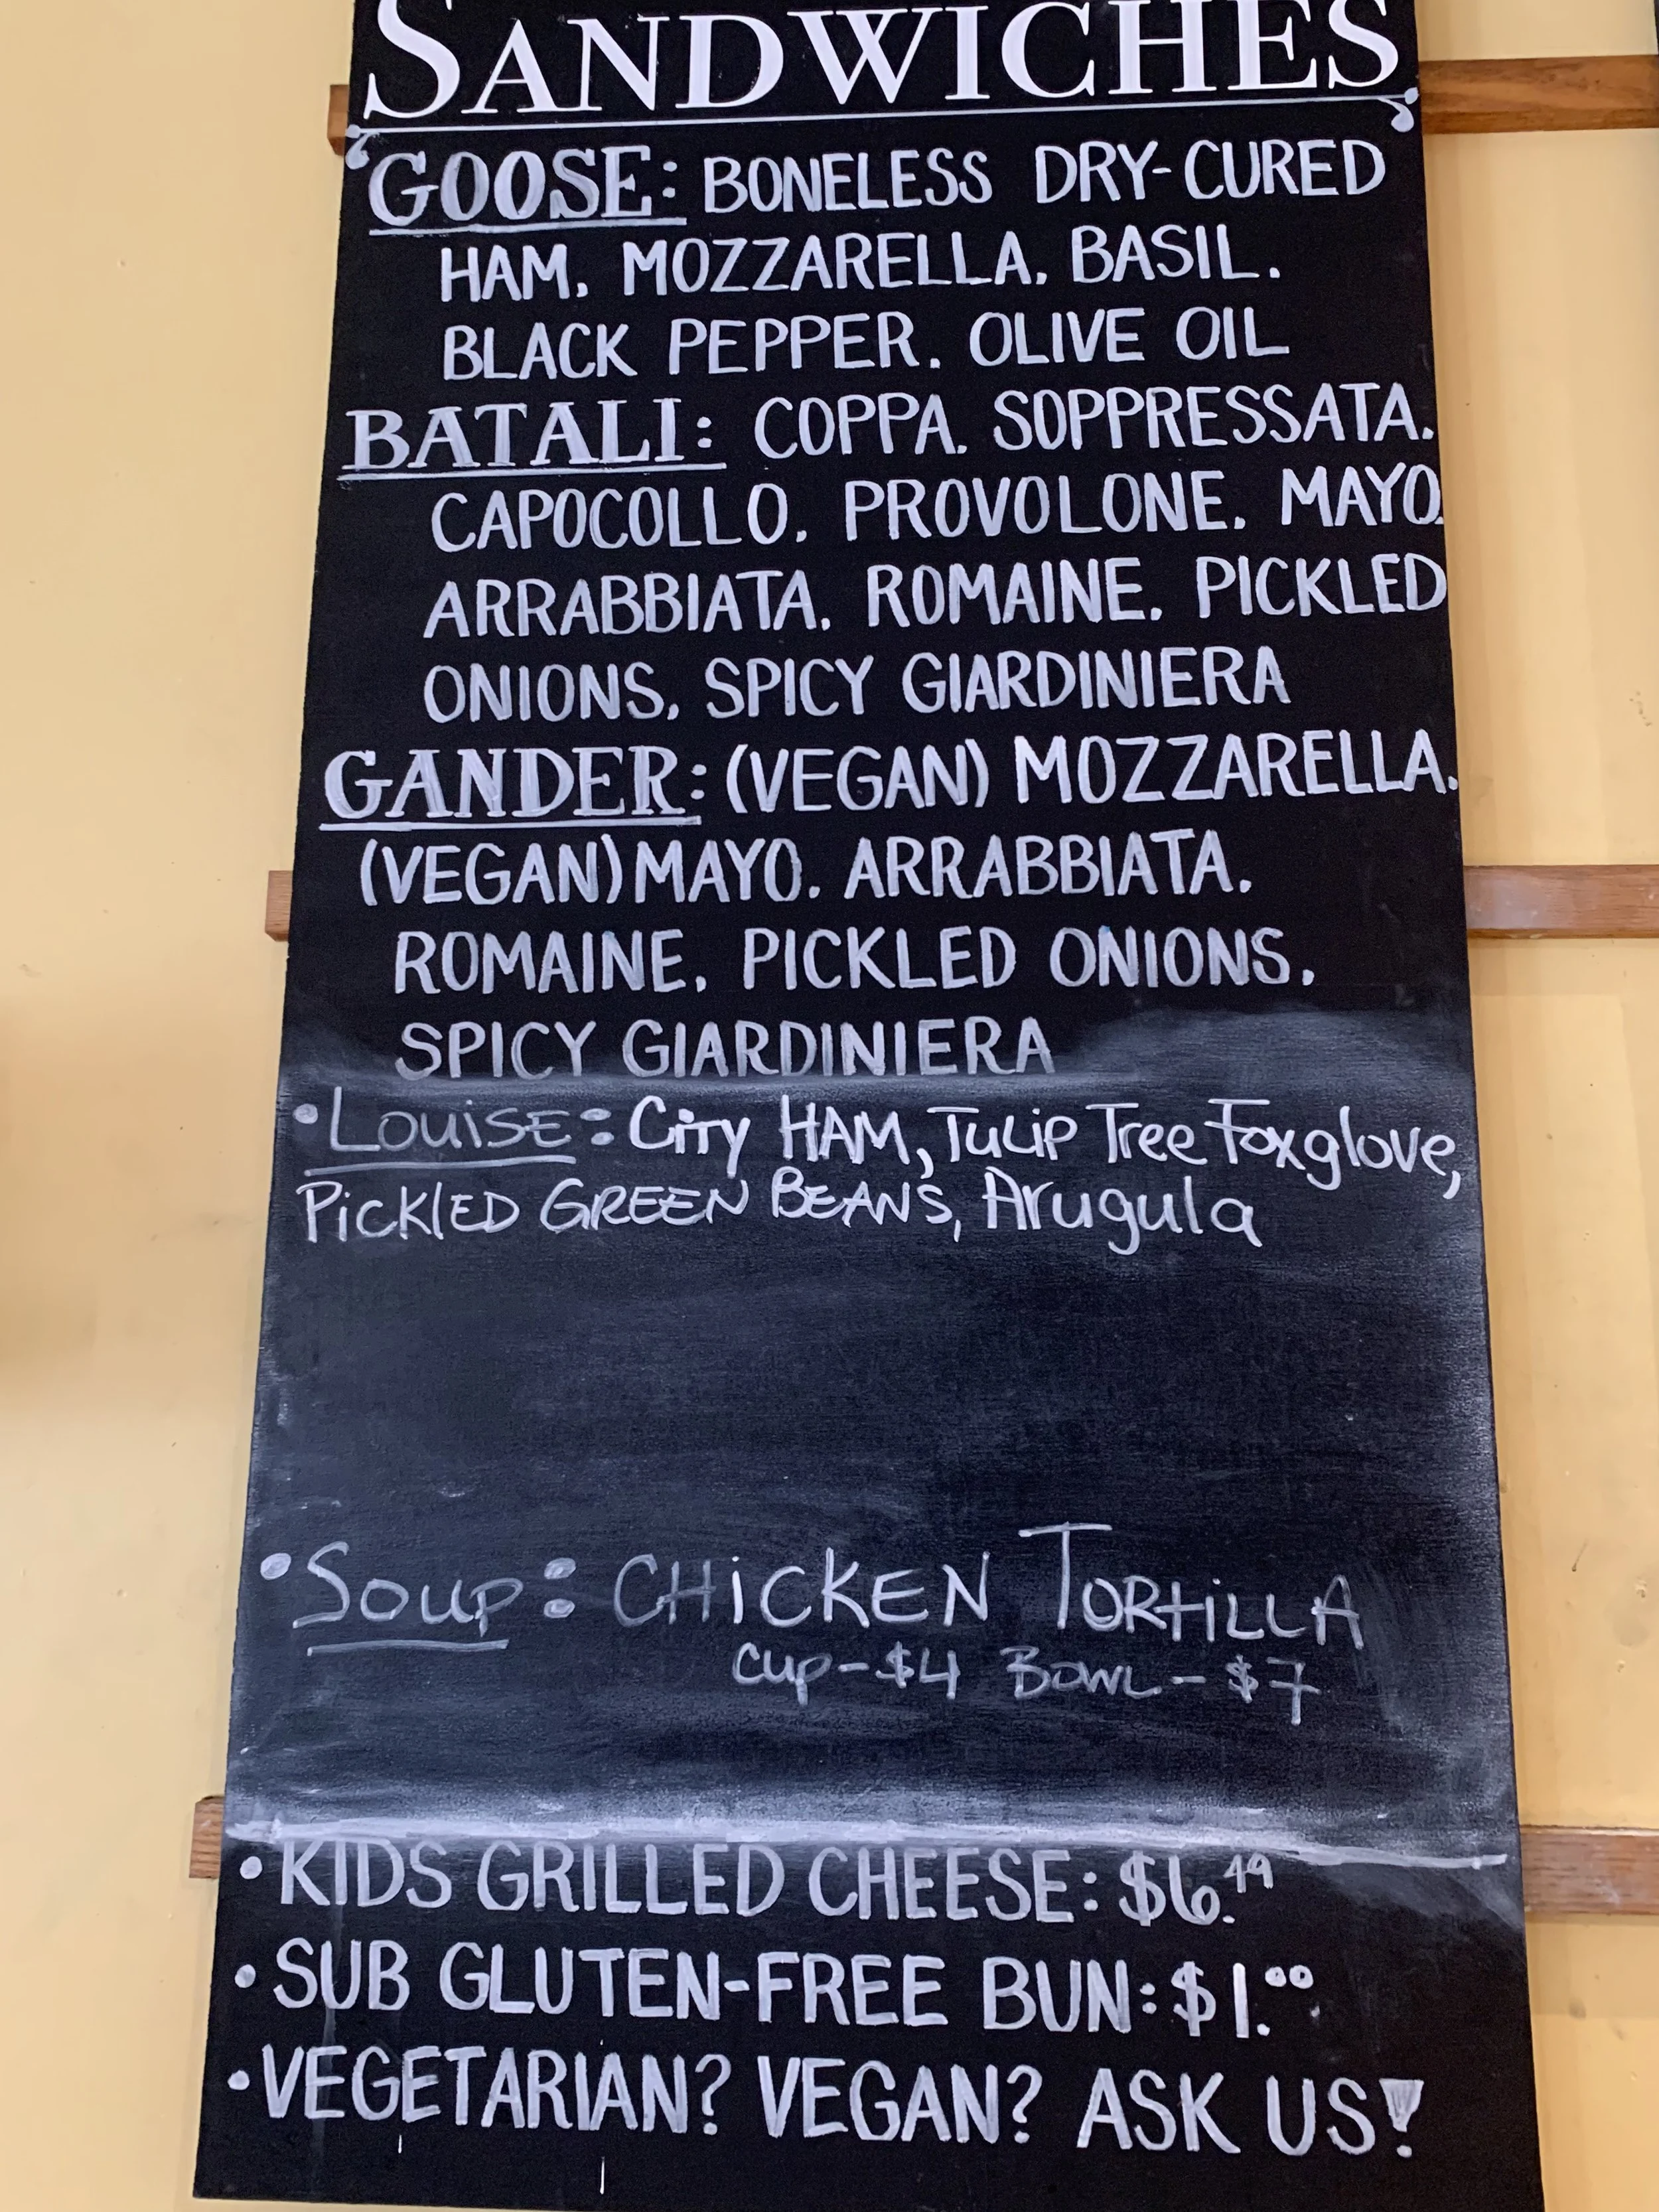 SANDWICHES
GOOSE: BONELESS DRY-CURED
HAM. MOZZARELLA. BASIL.
BLACK PEPPER. OLIVE OIL
BATALI: COPPA. SOPPRESSATA.
CAPOCOLLO. PROVOLONE. MAYO.
ARRABBIATA. ROMAINE. PICKLED
ONIONS. SPICY GIARDINIERA
GANDER: (VEGAN) MOZZARELLA.
(VEGAN) MAYO. ARRABBIATA.
ROMAINE. PICKLED ONIONS.
SPICY GIARDINIERA
• LOUISE: City HAM, Tulip Tree Foxglove,
PICKLED GREEN BEANS, Arugula
• Soup: CHICKEN TORTILLA
Cup - $4 BOWL - $7
• KIDS GRILLED CHEESE: $6.49
• SUB GLUTEN-FREE BUN: $1.00
• VEGETARIAN? VEGAN? ASK US!